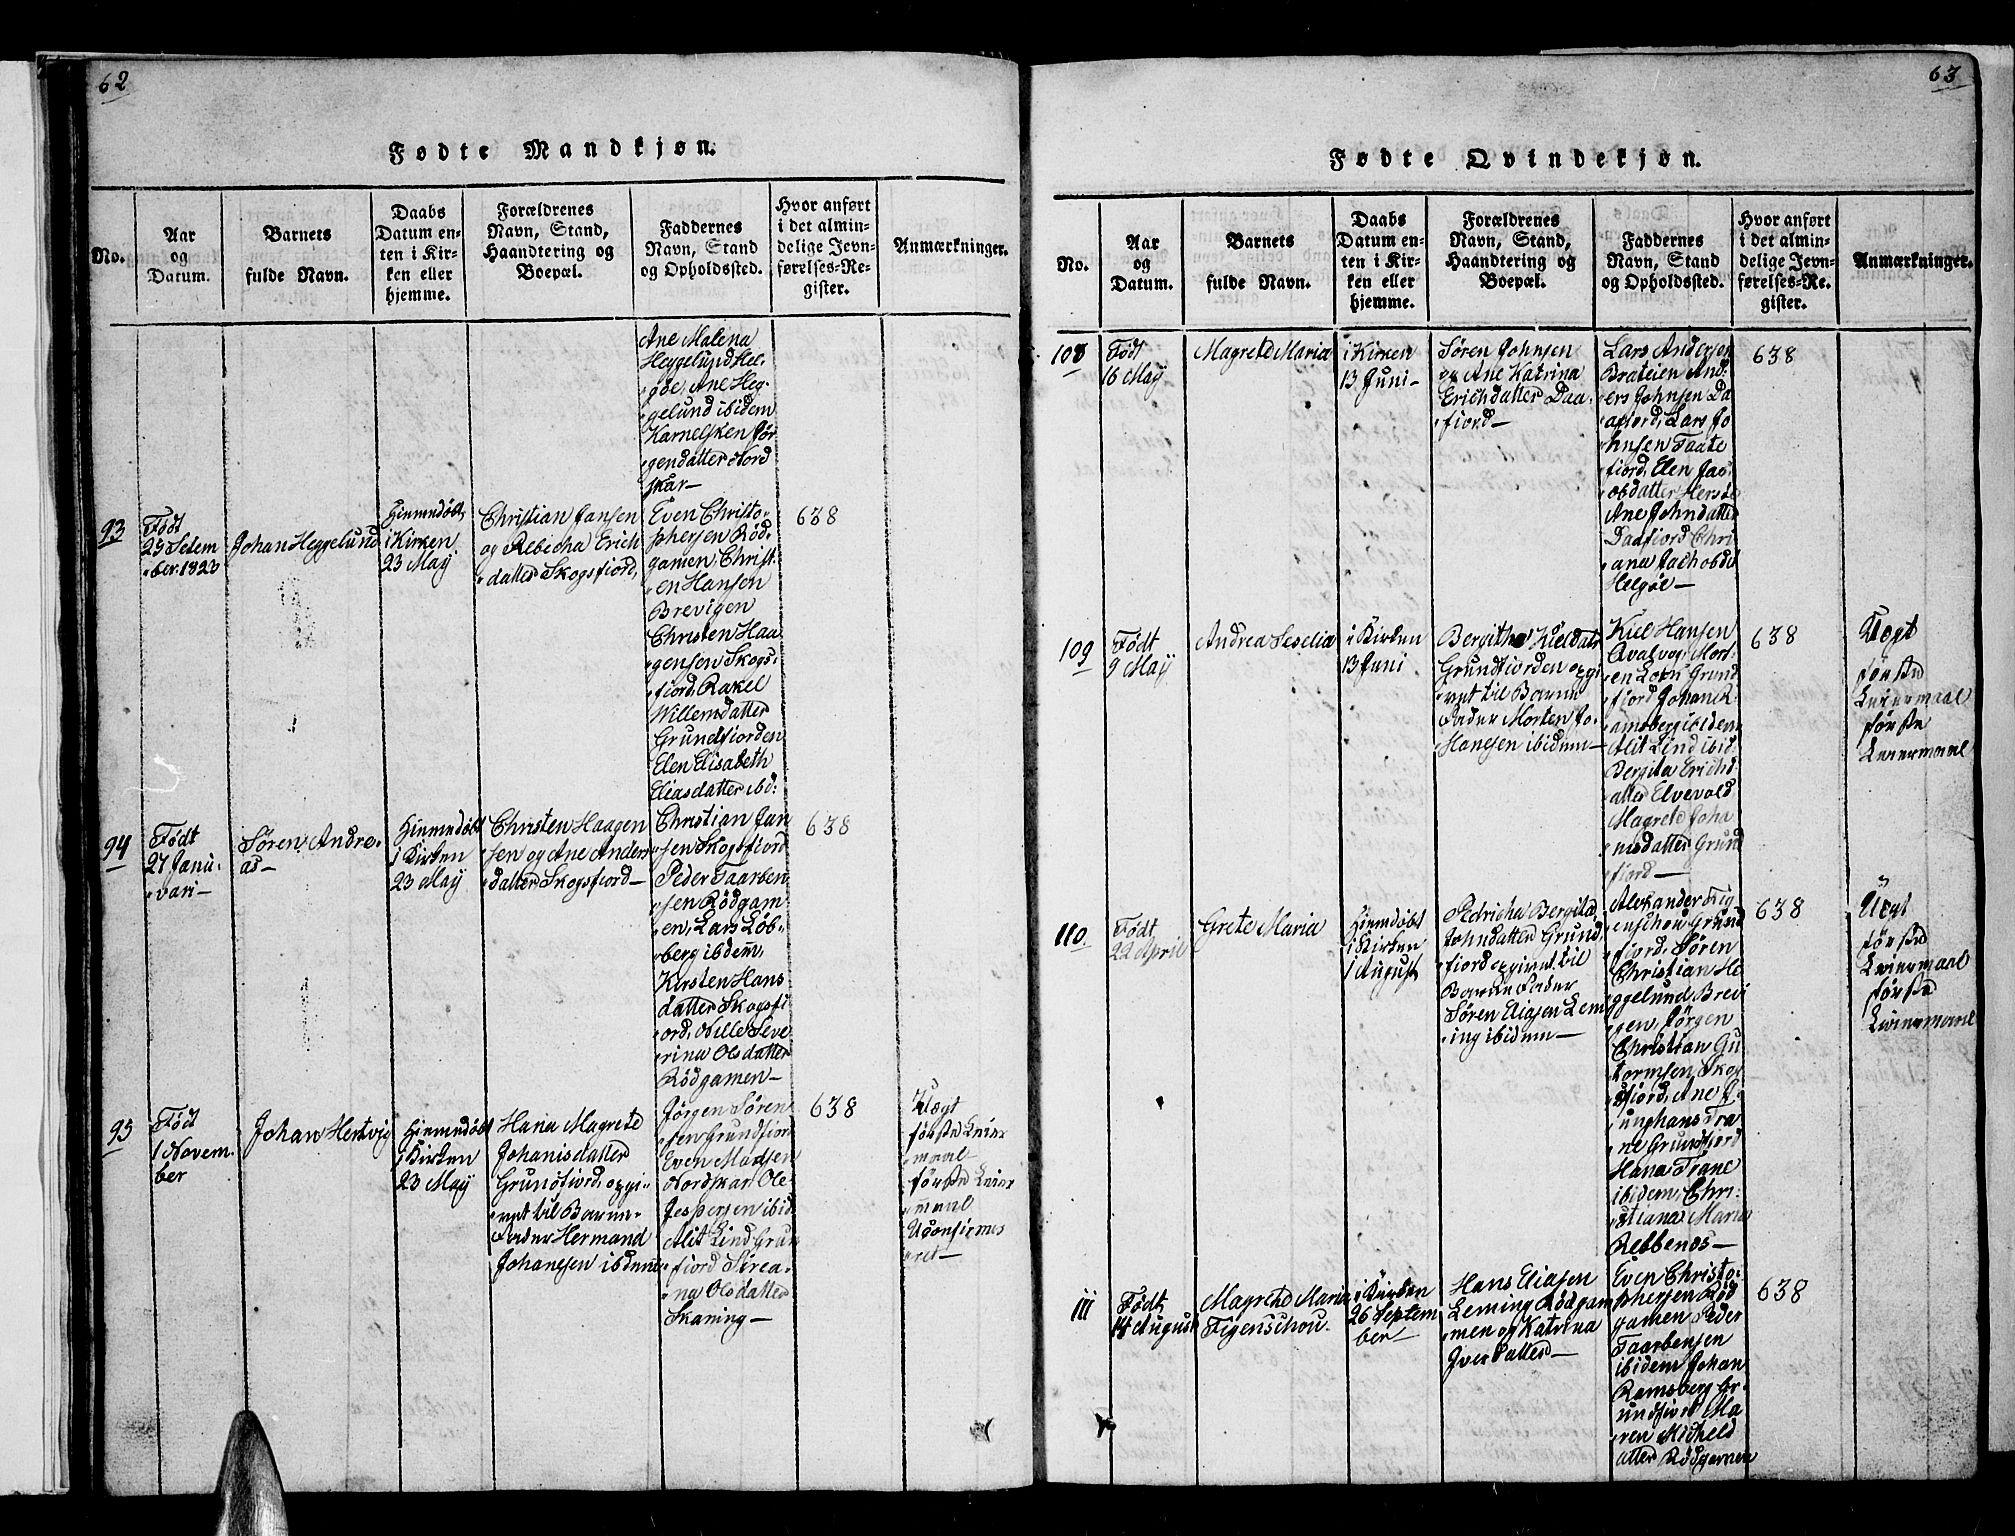 62
Fødte Mandkjøn.
No.
Aar
og
Datum.
Barnets
fulde Navn.
Daabs
Datum en-
ten i Kir-
ken eller
hjemme.
Forældrenes
Navn, Stand,
Haandtering og
Boepæl.
Faddernes
Navn, Stand
og Opholdssted.
Hvor anført
i det almin-
delige Jevn-
førelses-Re-
gister.
Anmærkninger.
Ane Malena
Heggelund Hel-
göe, Ane Heg-
gelund ibidem
Karnelsken Jör
gendatter Nord
skar—
93
Födt
Johan Heggelund
Hiemdöbt,
i Kirken
23 May
Christian Jansen
og Rebicha Erich
datter Skogsfiord,
Even Christo-
phersen Röd-
gamen, Christ-
en Hansen
Brevigen
Christen Haa
gensen Skogs-
fiord, Rakel
Willemdatter
Grundfiorden
Elen Elisabeth
Eliasdatter ibd:
638
94
Födt
27 Janu-
vari—
Sören Andre-
as—
Hiemdöbt
i Kirken
23 May
Christen Haagen
sen og Ane Anders
datter Skogsfiord—
Christian Jan
sen Skogsfiord
Peder Taarben
sen Rödgam
en, Lars Löb-
berg ibidem,
Kirsten Hans
datter Skogsfi
ord, Nille Seve
rina Olsdatter
Rödgamen—
638
95
Födt
1 Novem-
ber
Johan Hertvig
Hiemdöbt
i Kirken
23 May
Hana Magrete
Johanisdatter
Grundfiord, opgi-
vet til Barne-
Fader Hermand
Johanesen ibidem
Jörgen Sören-
sen Grundfiord
Even Madsen
Nordskar Ole
Jespersen ibid
Alit Lind Grun
fiord Sirea-
na Olsdatter
Skaning—
638
Uægt
förste Leier
maal
förste Leier
maal
Uconfirme
ret—
63
Fødte Qvindekjøn.
No.
Aar
og
Datum.
Barnets
fulde Navn.
Daabs
Datum en-
ten i Kir-
ken eller
hjemme.
Forældrenes
Navn, Stand,
Haandtering og
Boepæl.
Faddernes
Navn, Stand
og Opholdssted.
Hvor anført
i det almin-
delige Jevn-
førelses-Re-
gister.
Anmærkninger.
108
Födt
16 May
Magrete Maria
i Kirken
13 Juni—
Sören Johnsen
og Ane Katrina
Erichdatter Daa-
fiord—
Lars Andersen
Brateien And-
ers Johnsen Da
afiord, Lars Jo
hnsen Taate
fiord, Elen Jac
obdatter Hersö
Ane Johndatter
Daafiord Chri
ana Jachobdt
Helgöe—
638
109
Födt
9 May
Andrea Seselia
i Kirken
13 Juni
Bergithe Kieldatr
Grundfiorden opgi
vet til Barne
Fader Morten Jo-
hansen ibidem—
Kiel Hansen
Qvalvog, Mort-
en Grund
fiord Johan R
amsberg ibidem
Alit Lind ibid
Bergita Erichd
atter Elvevold
Magrete Joha
nisdatter Grund
fiord—
638
Uægt
förste
Leiermaal
förste
Leiermaal
110.
Födt
22 April
Grete Maria
Hiemdöbt
i Kirken
1 August
Pedricha Bergita
Johndatter Grund
fiord opgivet til
Barne Fader
Sören Eliasen Lem
ing ibidem—
Alexander Fig
enschou Grund
fiord, Sören
Christian He
ggelund Brevi
gen, Jörgen
Christian Gu
tormsen, Skog
sfiord, Ane J
unghans Tra
ne Grundfiord
Hana Trane
ibidem, Chri-
stiana Maria
Rebbenes—
638
Uægt
förste
Leiermaal
förste
Leiermaal
111
Födt
14 August
Magrete Maria
Figenschou.
i Kirken
26 Septem
ber—
Hans Eliasen
Leming Rödgam
men og Katrina
Iverdatter—
Even Christo-
phersen Röd
gamen Peder
Taarbensen
ibidem Johan
Ramsberg Gr-
undfiord Ma
ren Micheld
atter Rödgamen
638